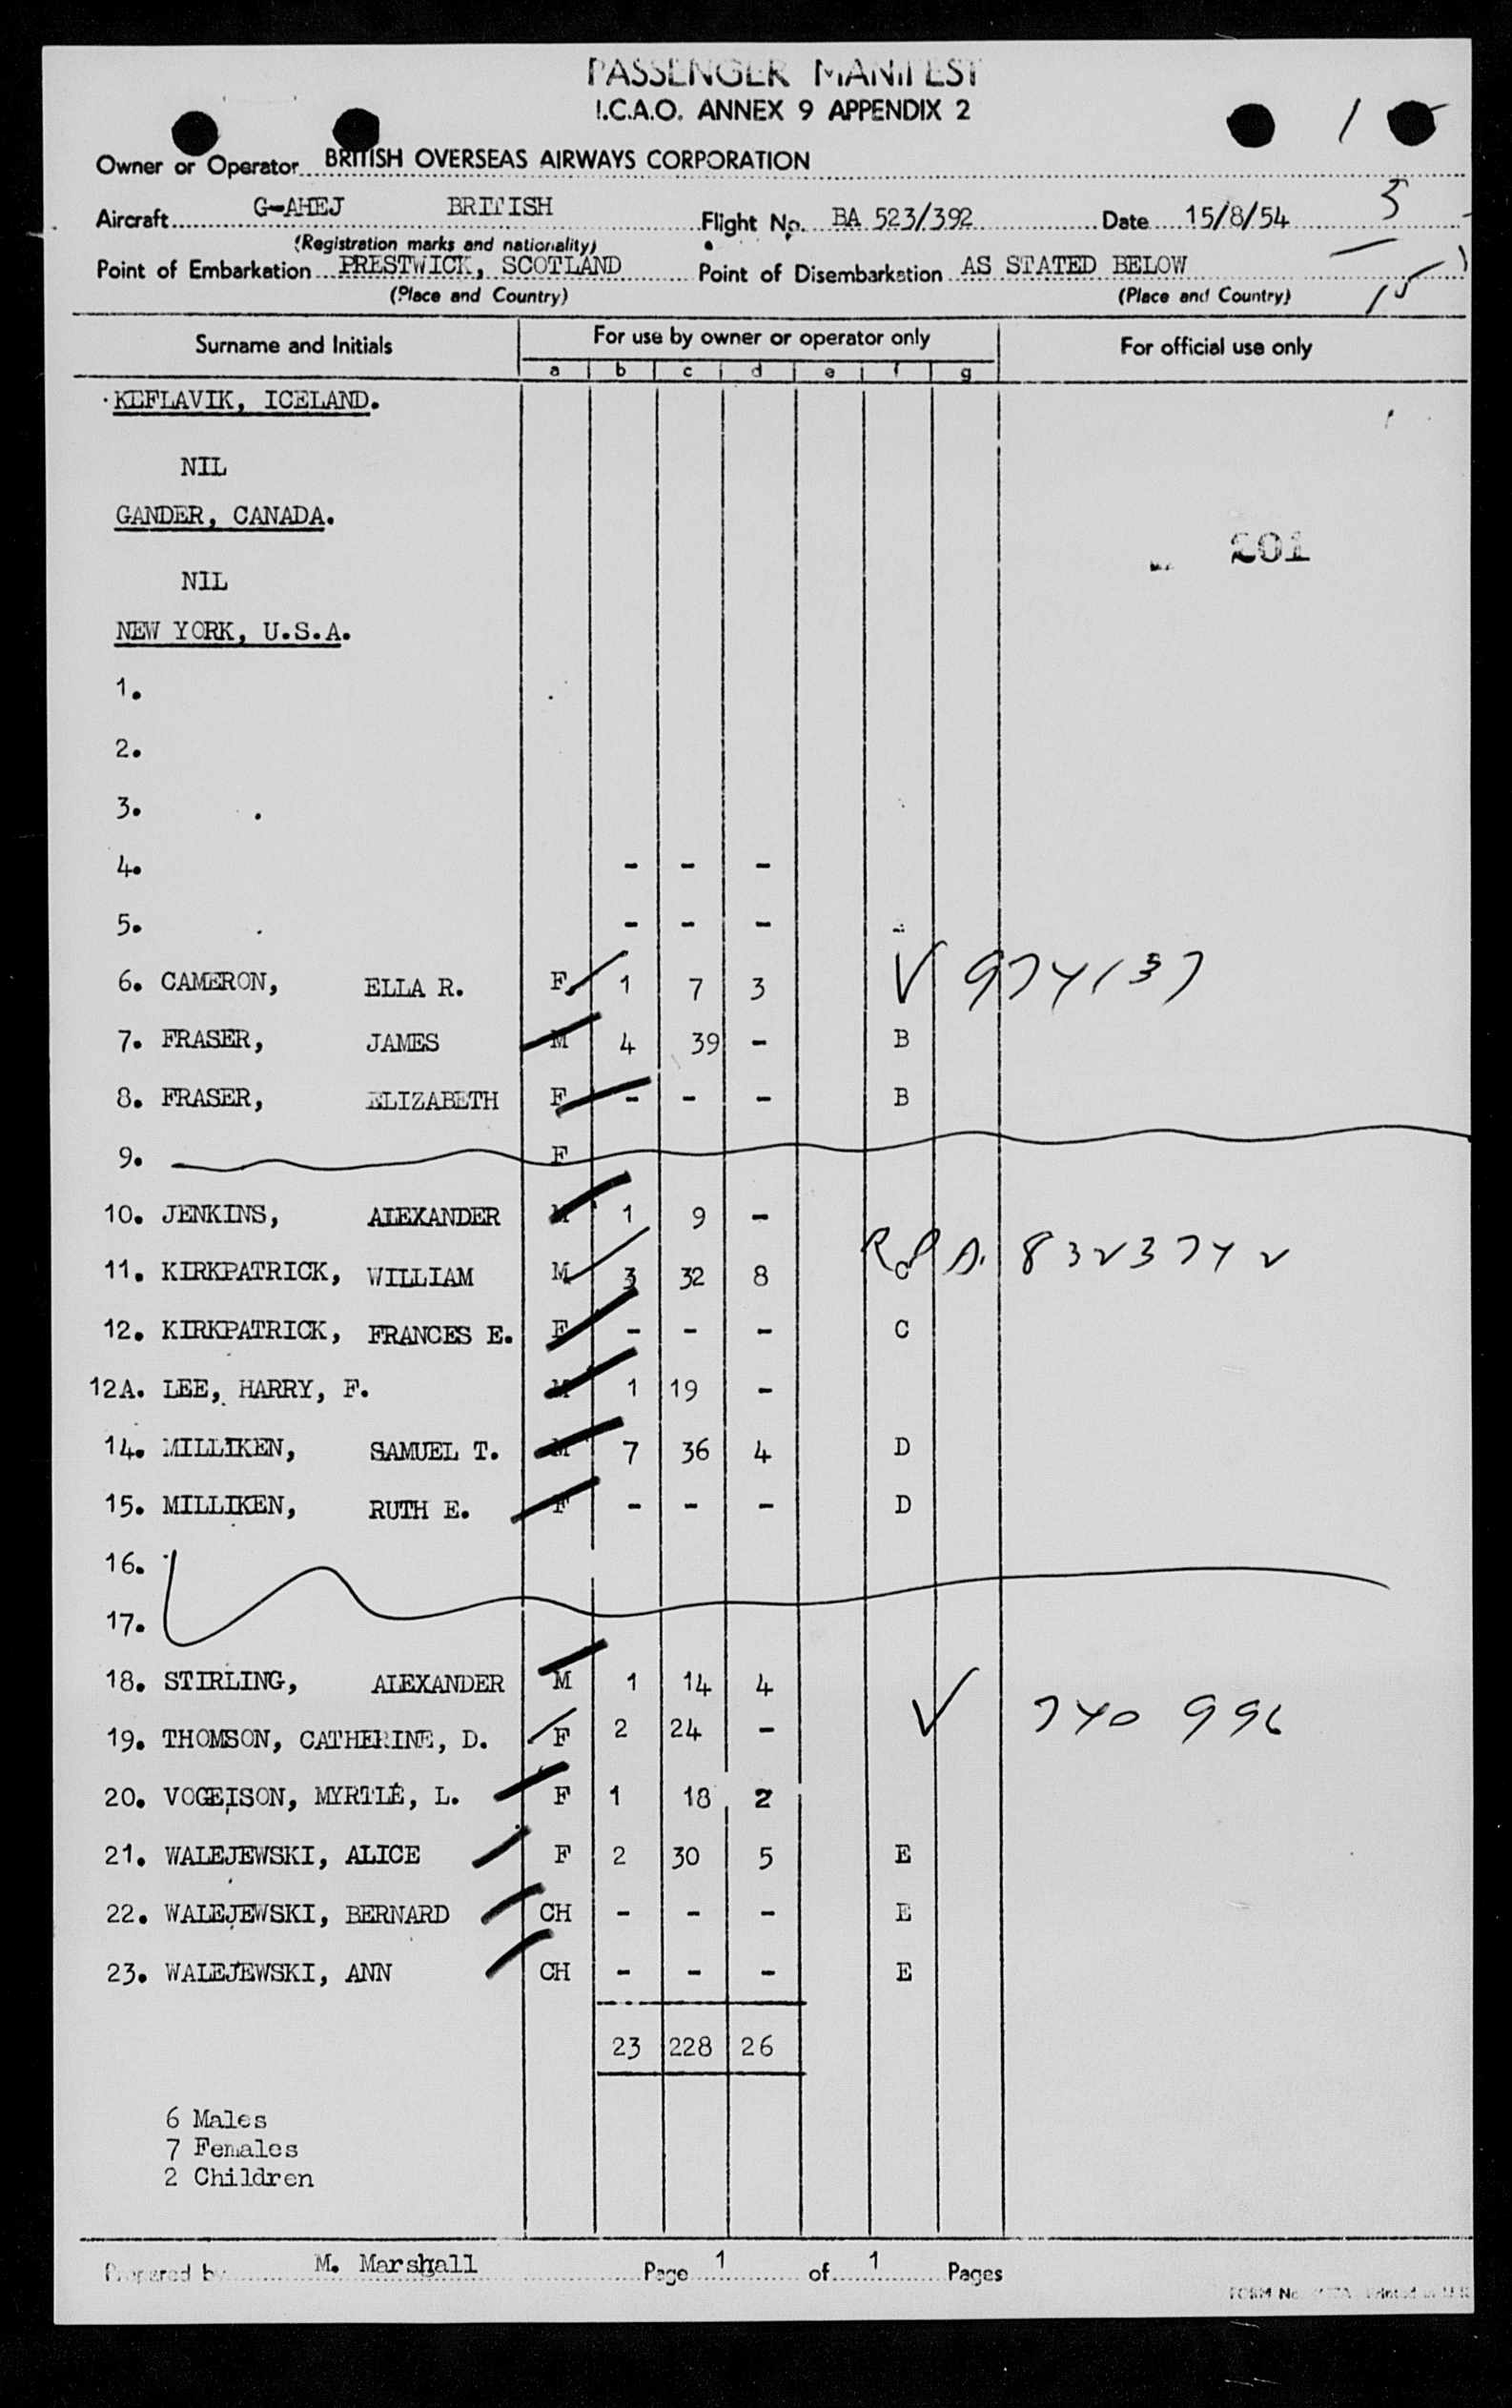 PASSENGER MANIFEST
I.C.A.O. ANNEX 9 APPENDIX 2
1
Owner or Operator BRITISH OVERSEAS AIRWAYS CORPORATION
Aircraft G-AHEJ BRITISH Flight No. BA 523/392 Date 15/8/54 5
(Registration marks and nationality)
Point of Embarkation PRESTWICK, SCOTLAND Point of Disembarkation AS STATED BELOW
(Place and Country) (Place and Country) 15
Surname and Initials For use by owner or operator only For official use only
a b c d e f g
KEFLAVIK, ICELAND.
NIL
GANDER, CANADA.
201
NIL
NEW YORK, U.S.A.
1.
2.
3.
4. - - -
5. - - -
6. CAMERON, ELLA R. F 1 7 3 974137
7. FRASER, JAMES M 4 39 - B
8. FRASER, ELIZABETH F - - - B
9. F
10. JENKINS, ALEXANDER M 1 9 -
11. KIRKPATRICK, WILLIAM M 3 32 8 C 8323742
12. KIRKPATRICK, FRANCES E. F - - - C
12A. LEE, HARRY, F. M 1 19 -
14. MILLIKEN, SAMUEL T. M 7 36 4 D
15. MILLIKEN, RUTH E. F - - - D
16.
17.
18. STIRLING, ALEXANDER M 1 14 4
19. THOMSON, CATHERINE, D. F 2 24 - 740 996
20. VOGEISON, MYRTLE, L. F 1 18 2
21. WALEJEWSKI, ALICE F 2 30 5 E
22. WALEJEWSKI, BERNARD CH - - - E
23. WALEJEWSKI, ANN CH - - - E
23 228 26
6 Males
7 Females
2 Children
Prepared by M. Marshall Page 1 of 1 Pages
FORM No.